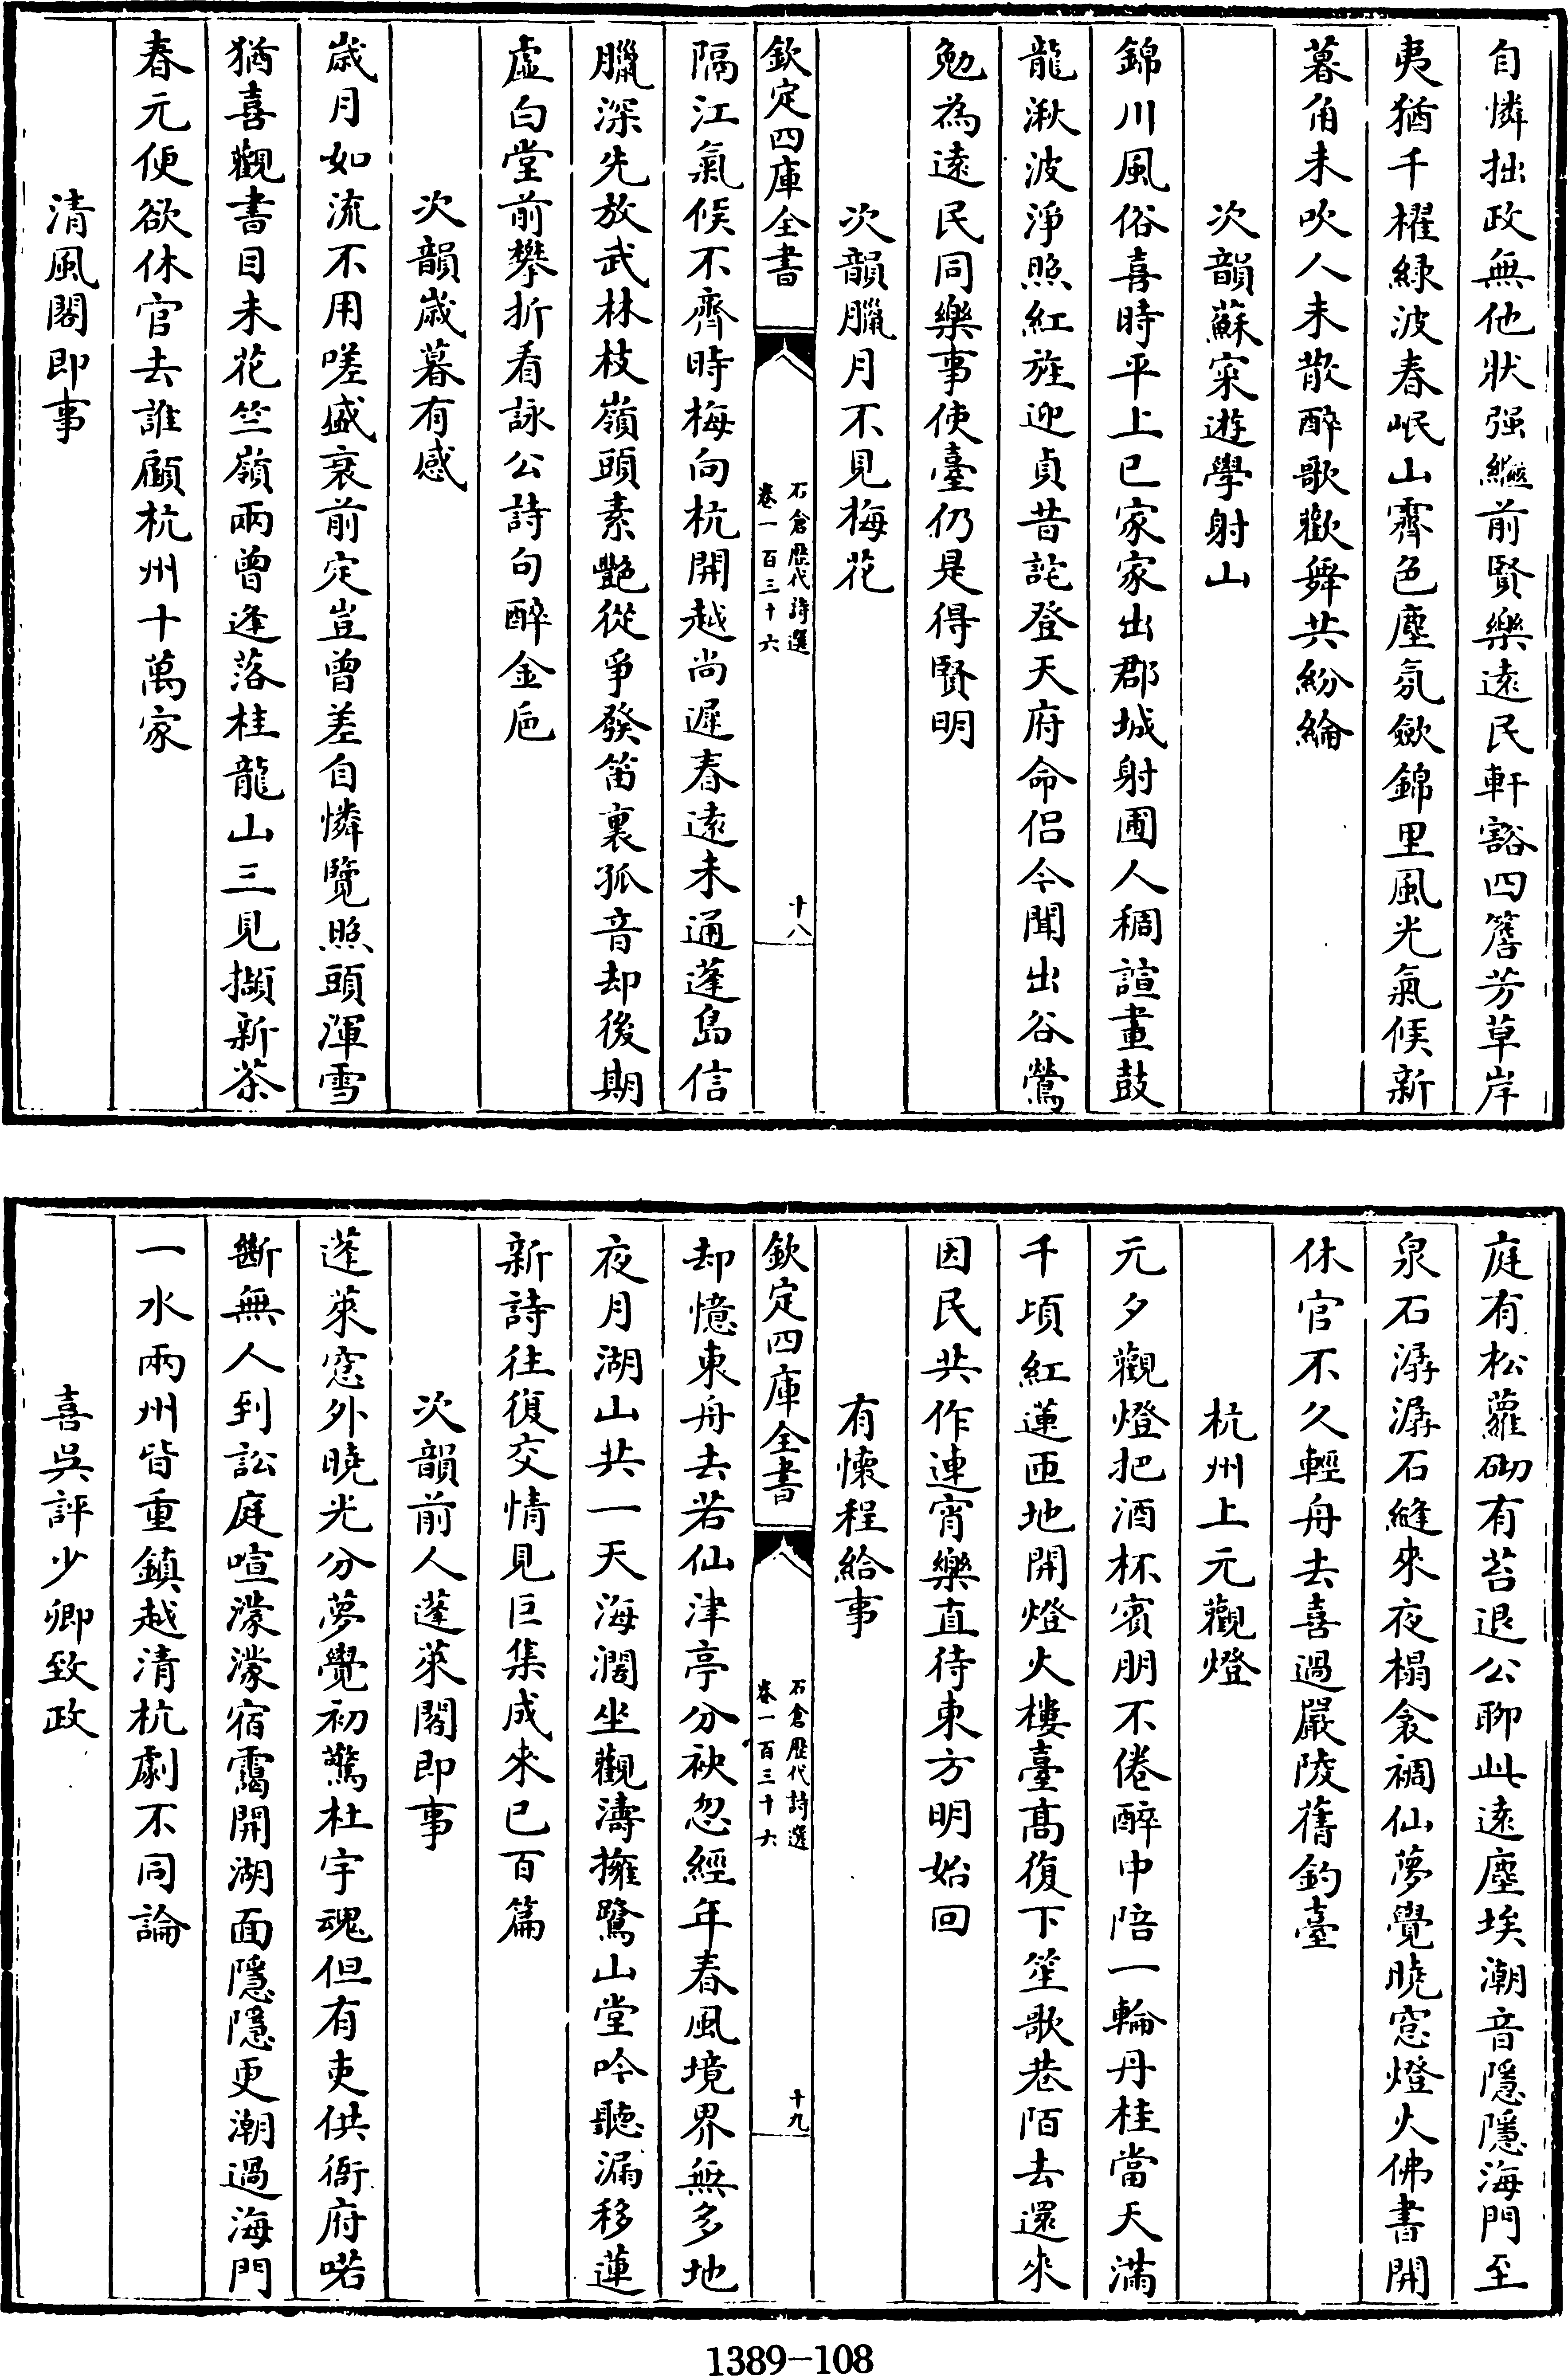 自憐拙政無他狀强繼前賢樂逺民軒豁四簷芳草岸
夷猶千櫂緑波春岷山霽色塵氛歛錦里風光氣候新
暮角未吹人未散醉歌歡舞共紛綸
次韻蘇寀遊學射山
錦川風俗喜時平上已家家出郡城射圃人稠諠畫鼓
龍湫波淨照紅旌迎貞昔詫登天府命侣今聞出谷鶯
勉為逺民同樂事使臺仍是得賢明
次韻臘月不見梅花
欽定四庫全書
石倉歴代詩選
卷一百三十六
十八
隔江氣候不齊時梅向杭開越尚遲春逺未通蓬島信
臘深先放武林枝嶺頭素艷從爭發笛裏孤音却後期
虚白堂前攀折看詠公詩句醉金巵
次韻歲暮有感
歲月如流不用嗟盛衰前定豈曾差自憐覽照頭渾雪
猶喜觀書目未花竺嶺兩曾逢落桂龍山三見擷新茶
春元便欲休官去誰顧杭州十萬家
清風閣即事
庭有松蘿砌有苔退公聊此逺塵埃潮音隱隱海門至
泉石潺潺石縫來夜榻衾裯仙夢覺曉窓燈火佛書開
休官不久輕舟去喜過嚴陵舊釣臺
杭州上元觀燈
元夕觀燈把酒杯賓朋不倦醉中陪一輪丹桂當天滿
千頃紅蓮匝地開燈火樓臺髙復下笙歌巷陌去還來
因民共作連宵樂直待東方明始回
有懐程給事
欽定四庫全書
石倉歴代詩選
卷一百三十六
十九
却憶東舟去若仙津亭分袂忽經年春風境界無多地
夜月湖山共一天海濶坐觀濤擁鷺山堂吟聽漏移蓮
新詩往復交情見巨集成來已百篇
次韻前人蓬萊閣即事
蓬萊窓外曉光分夢覺初驚杜宇魂但有吏供衙府喏
斷無人到訟庭喧濛濛宿靄開湖面隱隱更潮過海門
一水兩州皆重鎮越清杭劇不同論
喜吳評少卿致政
1389-108